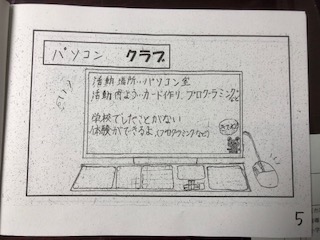 パソコン クラブ
活動場所‥パソコン室
活動内よう‥カード作り、プログラミング
など
学校でしたことがない
体験ができるよ(プログラミングなど)
5